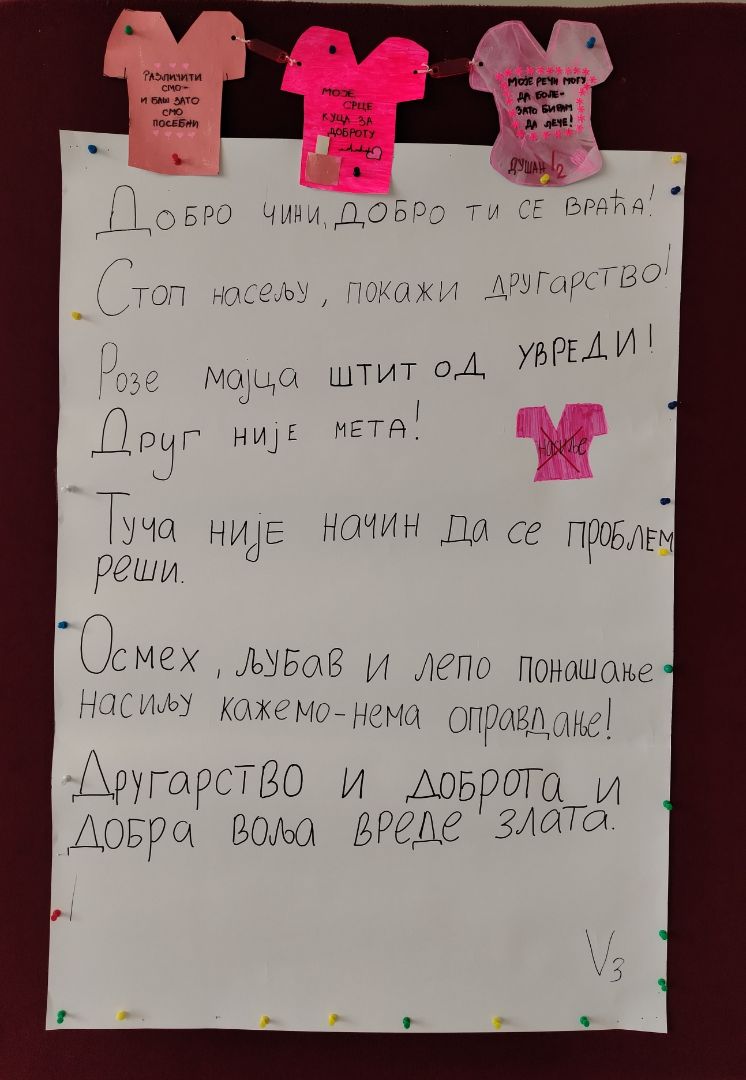 РАЗЛИЧИТИ
СМО-
И БАШ ЗАТО
СМО
ПОСЕБНИ
МОЈЕ
СРЦЕ
КУЦА ЗА
ДОБРОТУ
МОЈЕ РЕЧИ МОГУ
ДА БОЛЕ-
ЗАТО БИРАМ
ДА ЛЕЧЕ!
ДУШАН V2
Добро чини, добро ти се враћа!
Стоп насељу, покажи другарство!
Розе мајца штит од увреди!
Друг није мета!
насиље
Туча није начин да се проблем
реши.
Осмех, љубав и лепо понашање
насиљу кажемо-нема оправдање!
Другарство и доброта и
добра воља вреде злата.
V3